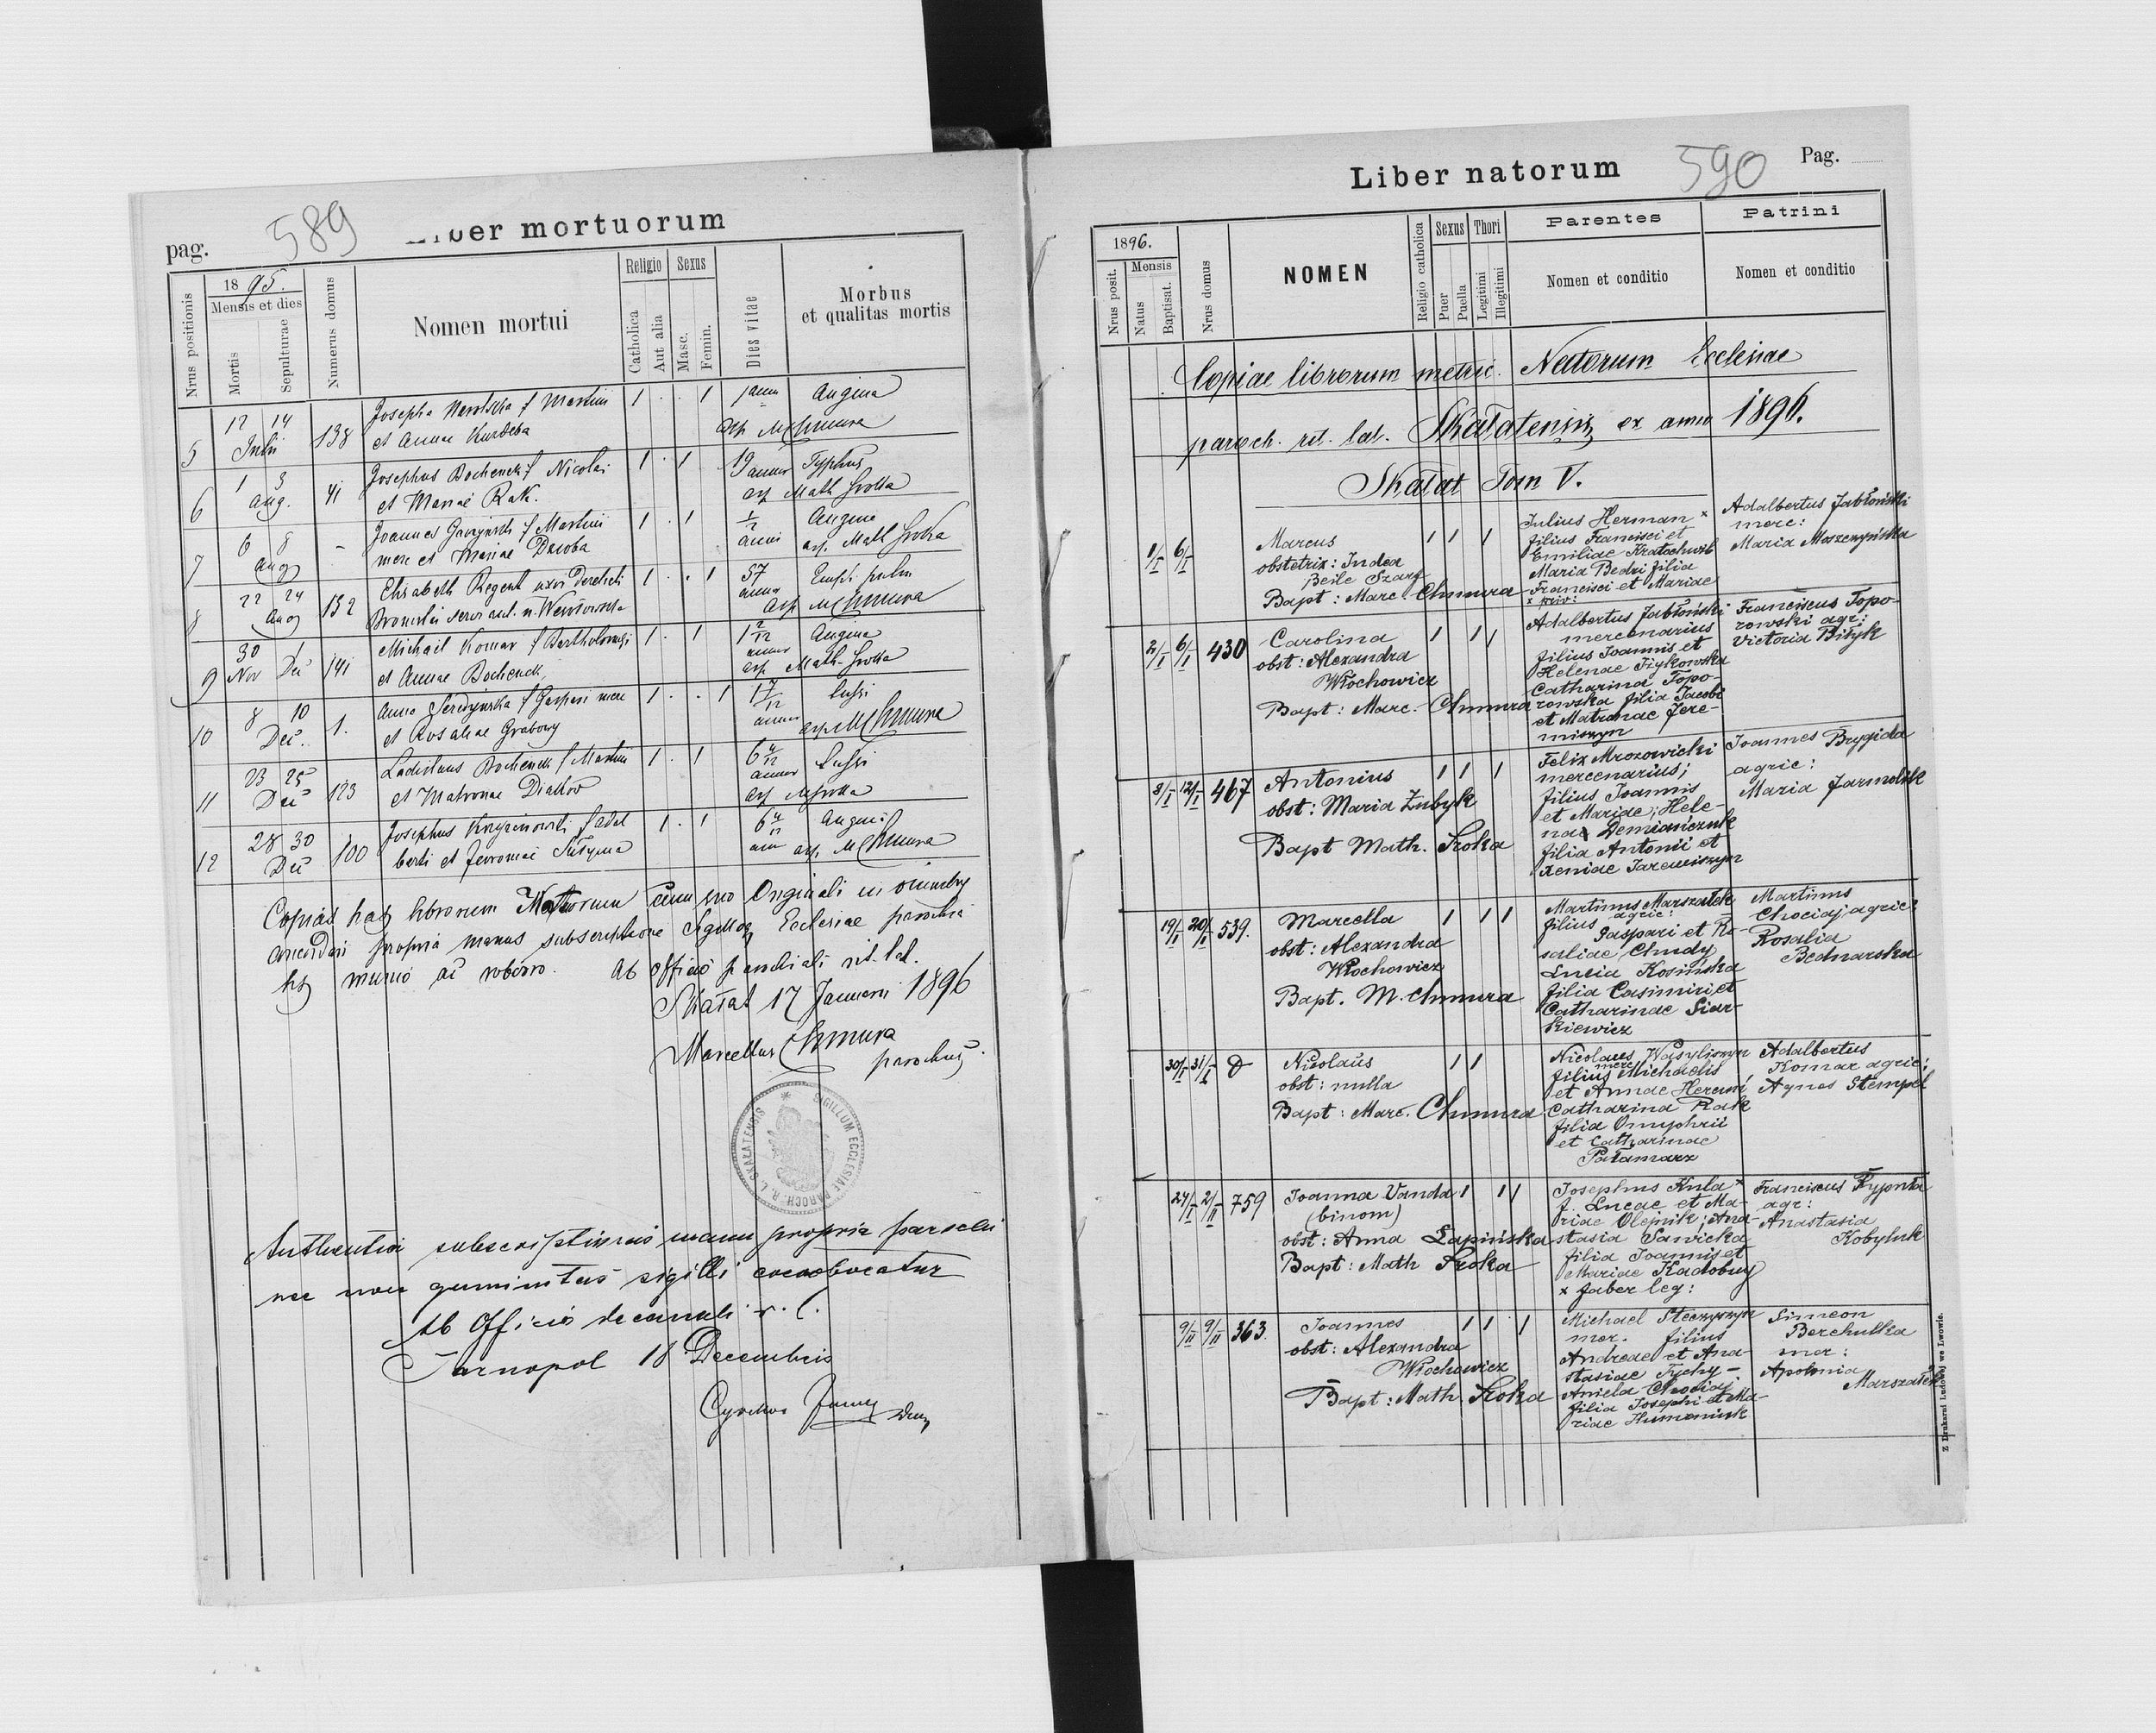 pag.
589
Liber mortuorum
Nrus positionis
1895.
Mensis et dies
Mortis
Sepulturae
Numerus domus
Nomen mortui
Religio
Sexus
Catholica
Aut alia
Masc.
Femin.
Dies vitae
Morbus
et qualitas mortis
5 12 14 Julii 138 Josepha f Martini 1 . . 1 1 anni Angina
et Annae Kuzdeba asp MChmura
6 1 3 Aug. 41 Josephus Bochenek f Nicolai 1 . 1 19 annor Typhus
et Mariae Rak. asp Math Sroka
7 6 8 Aug - Joannes f Martini 1 . 1 anni Angina
merc et Mariae Dzioba asp. Math Sroka
8 22 24 Aug 132 Elisabeth Regent uxor derelicti 1 . . 1 57 annor Emph. pulm
Bronislai asp MChmura
9 30 Nov 1 Dec 141 Michael Komar f Bartholomaei 1 . 1 1 2/12 annor Angina
et Annae Bochenek asp Math. Sroka
10 8 10 Dec. 1. Anna f Gaspari merc 1 . . 1 1 7/12 annor tussi
et Rosaliae Grabowy asp MChmura
11 23 25 Dec 123 Ladislaus Bochenek f Martini 1 . 1 6 annor tussi
et Matronae Diakow asp MSroka
12 28 30 Dec 100 Josephus f Adal 1 . 1 6 ann Angina
berti et asp. MChmura
Copias has librorum Mortuorum cum suo Originali in omnibus
concordari propria manus subscriptione Sigilloq Ecclesiae parochia
lis munio ac roboro. Ab officio parochiali rit. lat.
Skałat 17 Januarii 1896
Marcellus Chmura
parochus.
SIGILLUM ECCLESIAE PAROCH. R. L. SKAŁATENSIS
subscriptionis manu propria parochi
nec non sigilli
Ab Officio decanali r. l.
Tarnopol 18 Decembris
Liber natorum
590
Pag.
1896.
Nrus posit.
Mensis
Natus
Baptisat.
Nrus domus
NOMEN
Religio catholica
Sexus
Puer
Puella
Thori
Legitimi
Illegitimi
Parentes
Nomen et conditio
Patrini
Nomen et conditio
Copiae librorum metric. Natorum Ecclesiae
paroch. rit. lat. Skałatensis ex anno 1896.
Skałat Tom V.
1/I 6/I Marcus 1 1 1
obstetrix: Judea
Beile Szarf
Bapt: Marc. Chmura
Julius Herman x
filius Francisci et
Emiliae Kratochwil
Maria Bedri filia
Francisci et Mariae
Adalbertus Jabłoński
merc:
Maria Moszczyńska
2/I 6/I 430 Carolina 1 1 1
obst: Alexandra
Włochowicz
Bapt: Marc. Chmura
Adalbertus Jabłoński
mercenarius
filius Joannis et
Helenae
Catharina Topo-
rowska filia Jacobi
et Matronae Jere-
miszyn
Franciscus Topo-
rowski agr:
Victoria Bityk
8/I 12/I 467 Antonius 1 1 1
obst: Maria Zubyk
Bapt Math. Sroka
Felix Mrozowicki
mercenarius;
filius Joannis
et Mariae; Hele-
nae Demianczuk
filia Antonii et
Xeniae Jaremiszyn
Joannes Brygida
agric:
Maria Jarmoluk
19/I 20/I 539. Marcella 1 1 1
obst: Alexandra
Włochowicz
Bapt. M. Chmura
Martinus Marszałek
agric:
filius Gaspari et Ro-
saliae Chudy
Lucia Kosińska
filia Casimiri et
Catharinae Siar-
kiewicz
Martinus
Chociaj agric:
Rosalia
Bednarska
30/I 31/I Nicolaus 1 1
obst: nulla
Bapt: Marc. Chmura
Nicolaus Wasyliszyn
merc
filius Michaelis
et Annae
Catharina Rak
filia Onuphrii
et Catharinae
Pałamarz
Adalbertus
Komar agric:
Agnes Stempel
24/I 2/II 759 Joanna Vanda 1 1 1
(binom)
obst: Anna Łapińska
Bapt: Math Sroka
Josephus Kula x
f. Lucae et Ma-
riae Olejnik; Ana-
stasia Sawicka
filia Joannis et
Mariae Kadobny
x faber leg:
Franciscus Ryponta
agr:
Anastasia
Kobyluk
9/II 9/II 363. Joannes 1 1 1
obst: Alexandra
Włochowicz
Bapt: Math. Sroka
Michael Steczyszyn
mer. filius
Andreae et Ana-
stasiae Tychy -
Aniela Chociaj
filia Josephi et Ma-
riae Humeniuk
Simeon
Berehulka
mer:
Apolonia
Marszałek
Z Drukarni Ludowej we Lwowie.